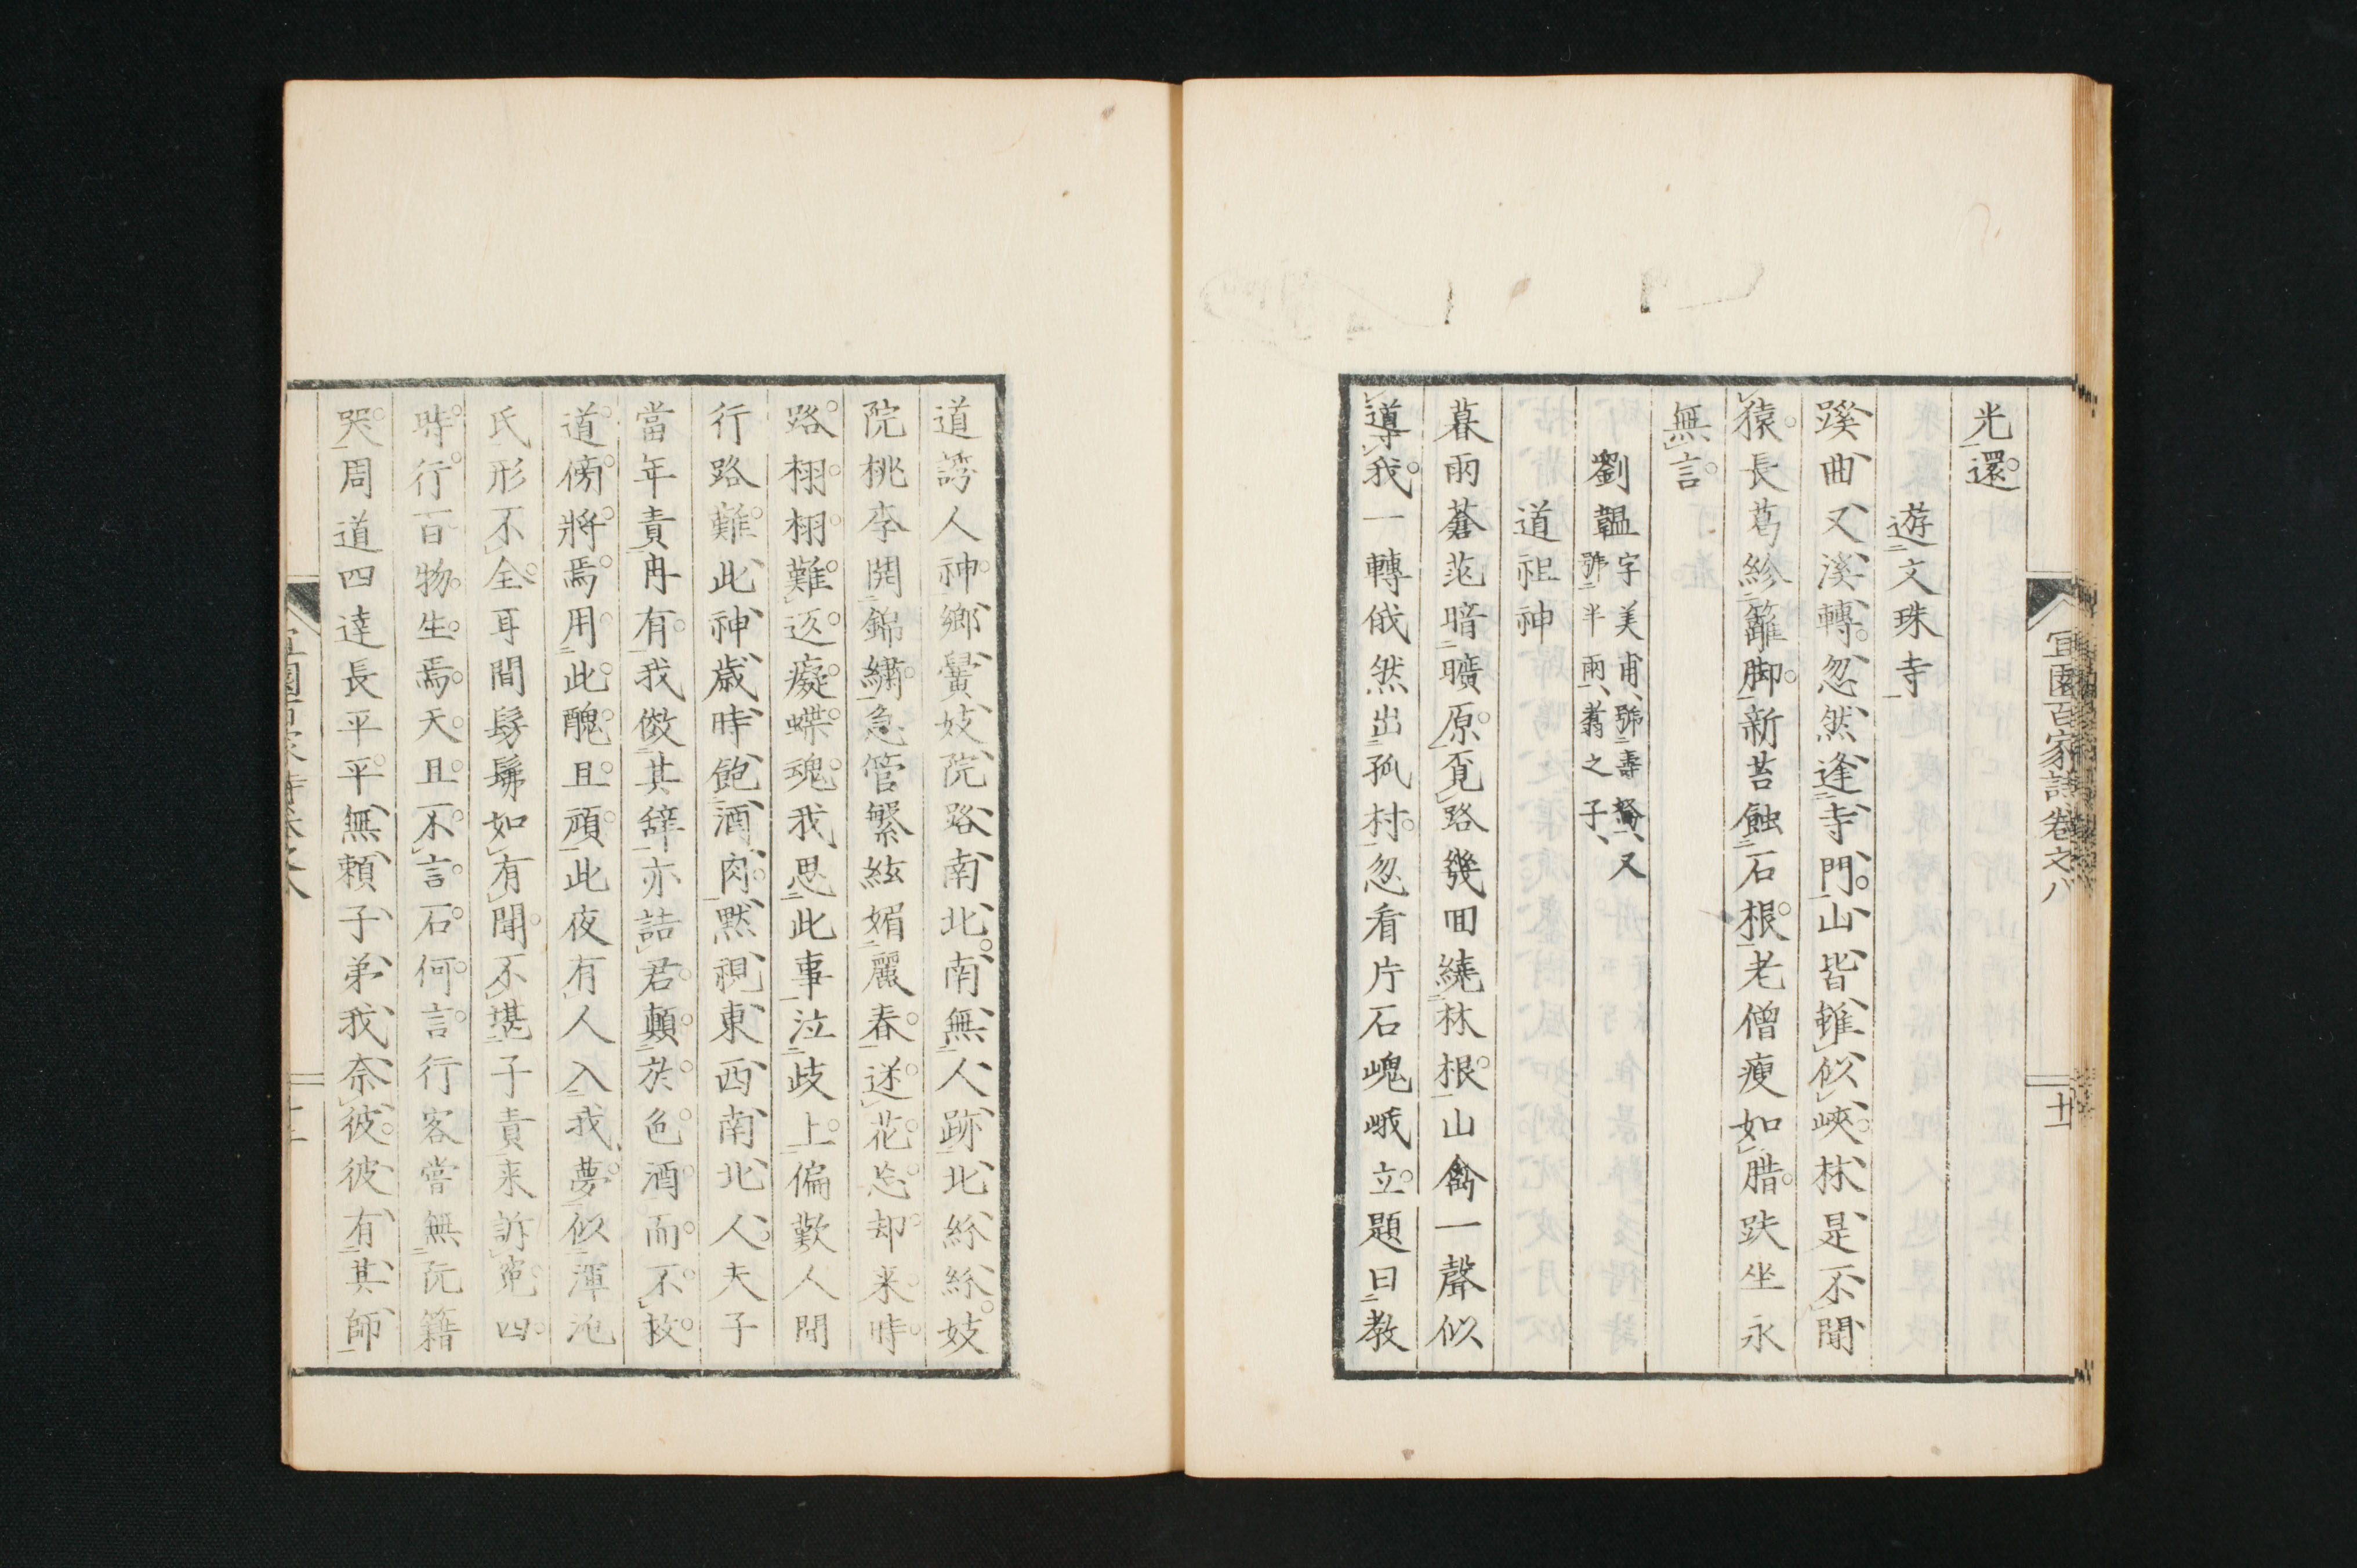 宜園百家詩卷之八
十一
光還
遊文珠寺
蹊曲又溪轉忽然逢寺門山皆雖似峽林是不聞
猿長葛紾籬脚新苔蝕石根老僧瘦如腊趺坐永
無言
劉韞
字美甫號壽
又
號半兩翁之子
道祖神
暮雨蒼茫暗曠原覔路幾回繞林根山禽一聲似
導我一轉俄然出孤村忽看片石嵬峨立題曰教
道誇人神鄉黌妓院路南北南無人跡北紛紛妓
院桃李開錦繡急管繁絃媚麗春迷花忘却来時
路栩栩難返癡蝶魂我思此事泣歧上偏歎人間
行路難此神歳時飽酒肉黙視東西南北人夫子
當年責冉有我傚其辞亦詰君顛於色酒而不救
道傍將焉用此醜且頑此夜有人入我夢似渾沌
氏形不全耳間髣髴如有聞不堪子責来訴寃四
時行百物生焉天且不言石何言行客嘗無阮籍
哭周道四達長平平無賴子弟我奈彼彼有其師